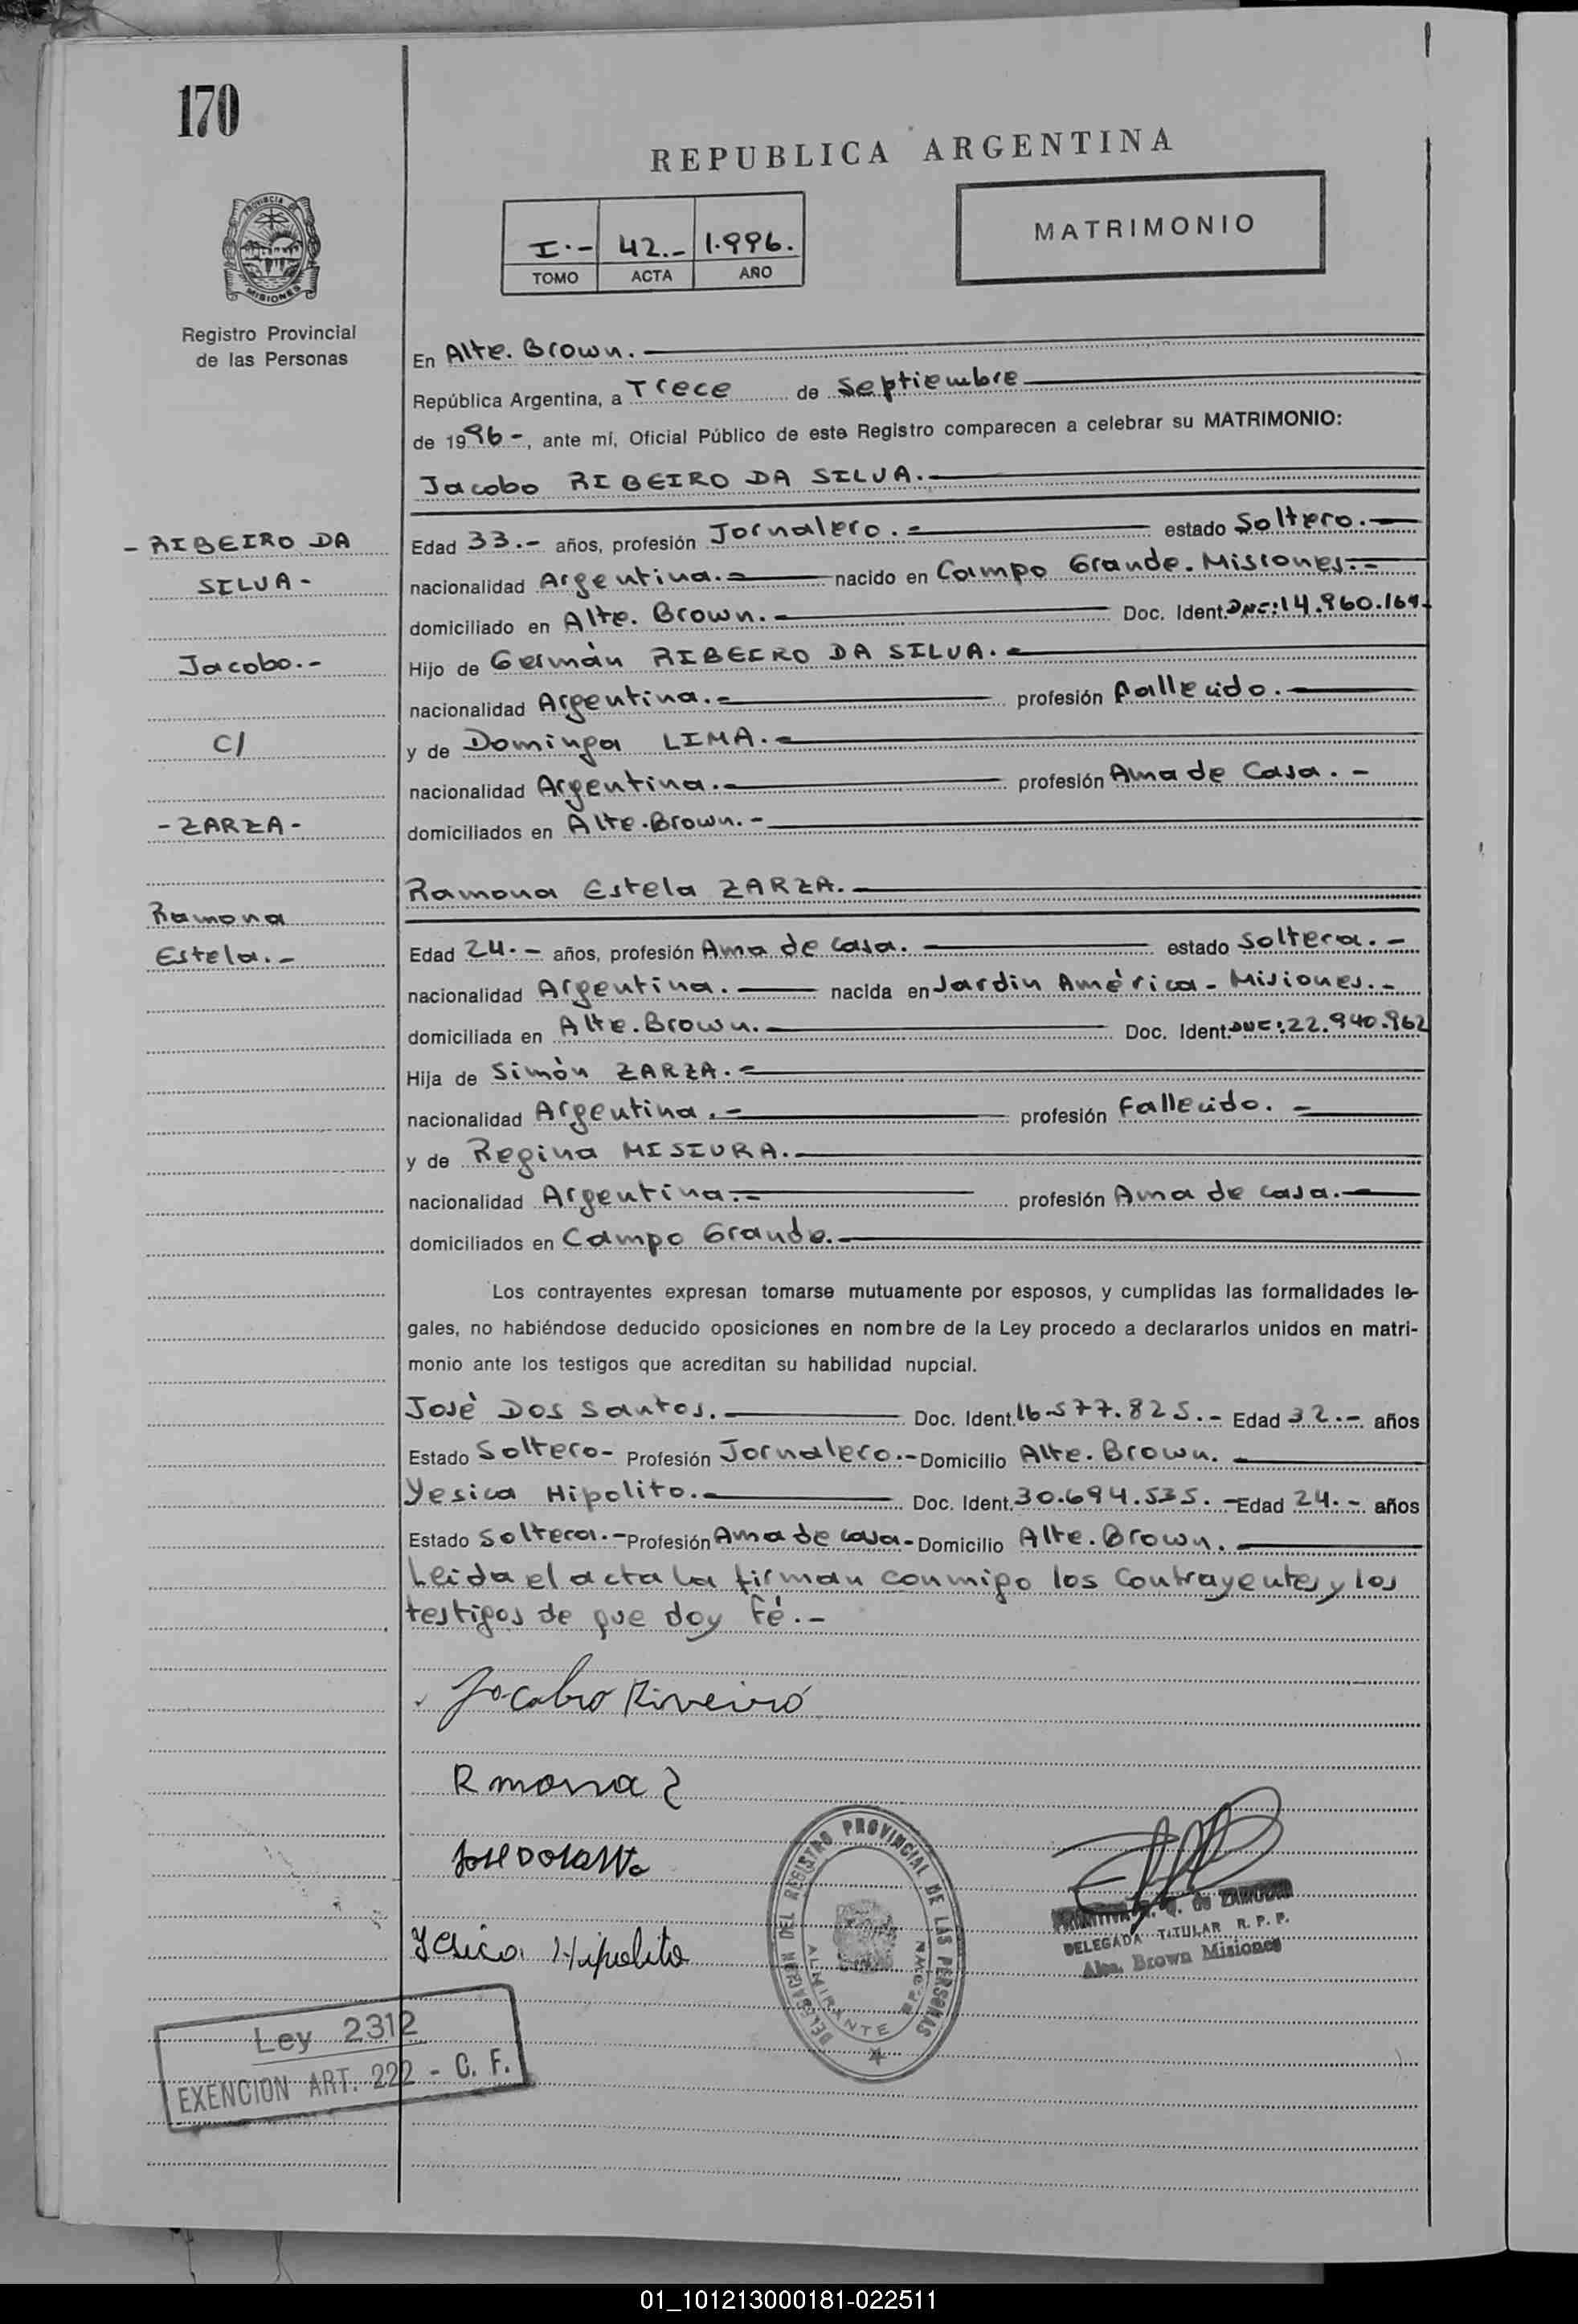 170
REPUBLICA ARGENTINA
I.- 42.- 1.996.
TOMO ACTA AÑO
MATRIMONIO
PROVINCIA DE
MISIONES
Registro Provincial
de las Personas
En Alte. Brown.
República Argentina, a Trece de Septiembre
de 1996-, ante mí, Oficial Público de este Registro comparecen a celebrar su MATRIMONIO:
Jacobo RIBEIRO DA SILVA.-
- RIBEIRO DA
SILVA -
Jacobo.-
C/
- ZARZA -
Ramona
Estela.-
Edad 33.- años, profesión Jornalero.- estado Soltero.-
nacionalidad Argentina.- nacido en Campo Grande. Misiones.-
domiciliado en Alte. Brown.- Doc. Ident. DNI: 14.960.169-
Hijo de Germán RIBEIRO DA SILVA.-
nacionalidad Argentina.- profesión Fallecido.-
y de Dominga LIMA.-
nacionalidad Argentina.- profesión Ama de Casa.-
domiciliados en Alte. Brown.-
Ramona Estela ZARZA.-
Edad 24.- años, profesión Ama de casa. estado Soltera.-
nacionalidad Argentina. nacida en Jardin América - Misiones.-
domiciliada en Alte. Brown.- Doc. Ident. DNI: 22.940.962
Hija de Simón ZARZA.-
nacionalidad Argentina.- profesión Fallecido.-
y de Regina MISIURA.-
nacionalidad Argentina.- profesión Ama de casa.-
domiciliados en Campo Grande.-
Los contrayentes expresan tomarse mutuamente por esposos, y cumplidas las formalidades le-
gales, no habiéndose deducido oposiciones en nombre de la Ley procedo a declararlos unidos en matri-
monio ante los testigos que acreditan su habilidad nupcial.
José Dos Santos.- Doc. Ident. 16.577.825.- Edad 32.- años
Estado Soltero- Profesión Jornalero.- Domicilio Alte. Brown.
Yesica Hipolito.- Doc. Ident. 30.694.535.- Edad 24.- años
Estado Soltera.- Profesión Ama de casa- Domicilio Alte. Brown.
Leida el acta la firman conmigo los Contrayentes y los
testigos de que doy fé.-
Jacobo Riveiro
Rmona Z
Yesica Hipolito
DELEGACION DEL REGISTRO PROVINCIAL DE LAS PERSONAS
ALMIRANTE
de
DELEGADA TITULAR R. P. P.
Alte. Brown Misiones
Ley 2312
EXENCION ART. 222 - C. F.
01_101213000181-022511